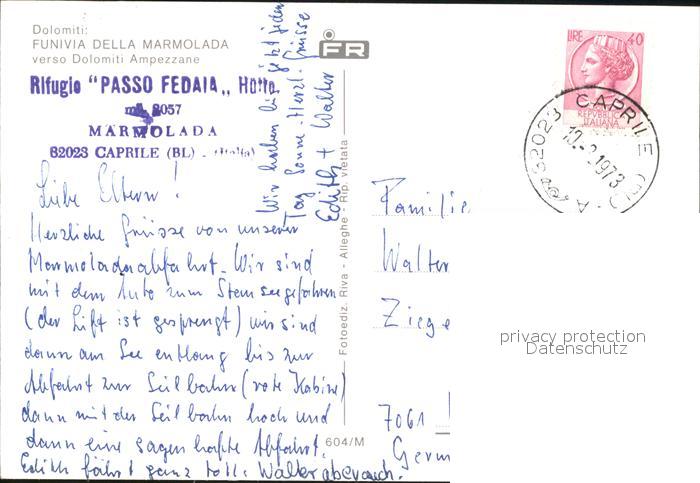 Dolomiti:
FUNIVIA DELLA MARMOLADA
verso Dolomiti Ampezzane
Rifugio "PASSO FEDAIA„ Hütte
mt. 2057
MARMOLADA
32023 CAPRILE (BL) - (Italia)
Liebe Eltern!
Herzliche Grüsse von unserer
Marmoladaabfahrt. Wir sind
mit dem Auto zum Stausee gefahren
(der Lift ist gesprengt) wir sind
dann am See entlang bis zur
Abfahrt zur Seilbahn (rote Kabine)
dann mit der Seilbahn hoch und
dann eine sagenhafte Abfahrt.
Edith fährt ganz toll. Walter aber auch.
Wir haben bis jetzt jeden
Tag Sonne. Herzl. Grüsse
Edith + Walter
FR
Fotoediz. Riva - Alleghe - Rip. vietata
604/M
LIRE 40
REPVBBLICA
ITALIANA
32023 CAPRILE
10.-2.1973
Familie
Walter
Ziege
7061
Germ
privacy protection
Datenschutz